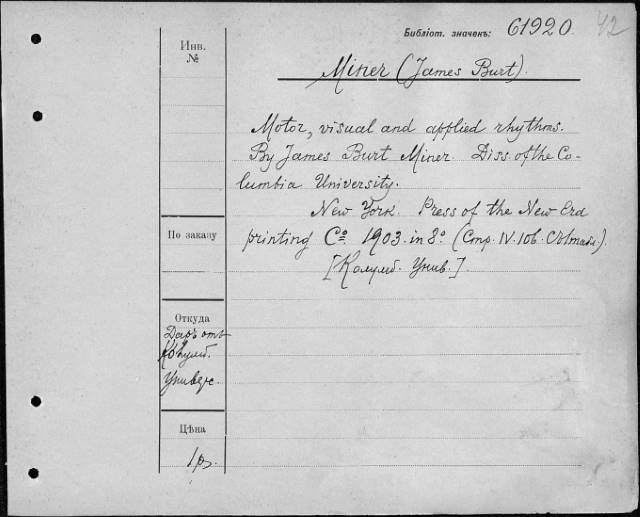 Библіот. значекъ: 61920. 42
Инв.
№
Miner (James Burt).
Motor, visual and applied rhythms.
By James Burt Miner. Diss. of the Co-
lumbia University.
New York. Press of the New Era
printing Cº 1903. in 8º.
[Колумб. Унив.].
По заказу
Откуда
Даръ отъ
Колумб.
Универс.
Цѣна
1 р.